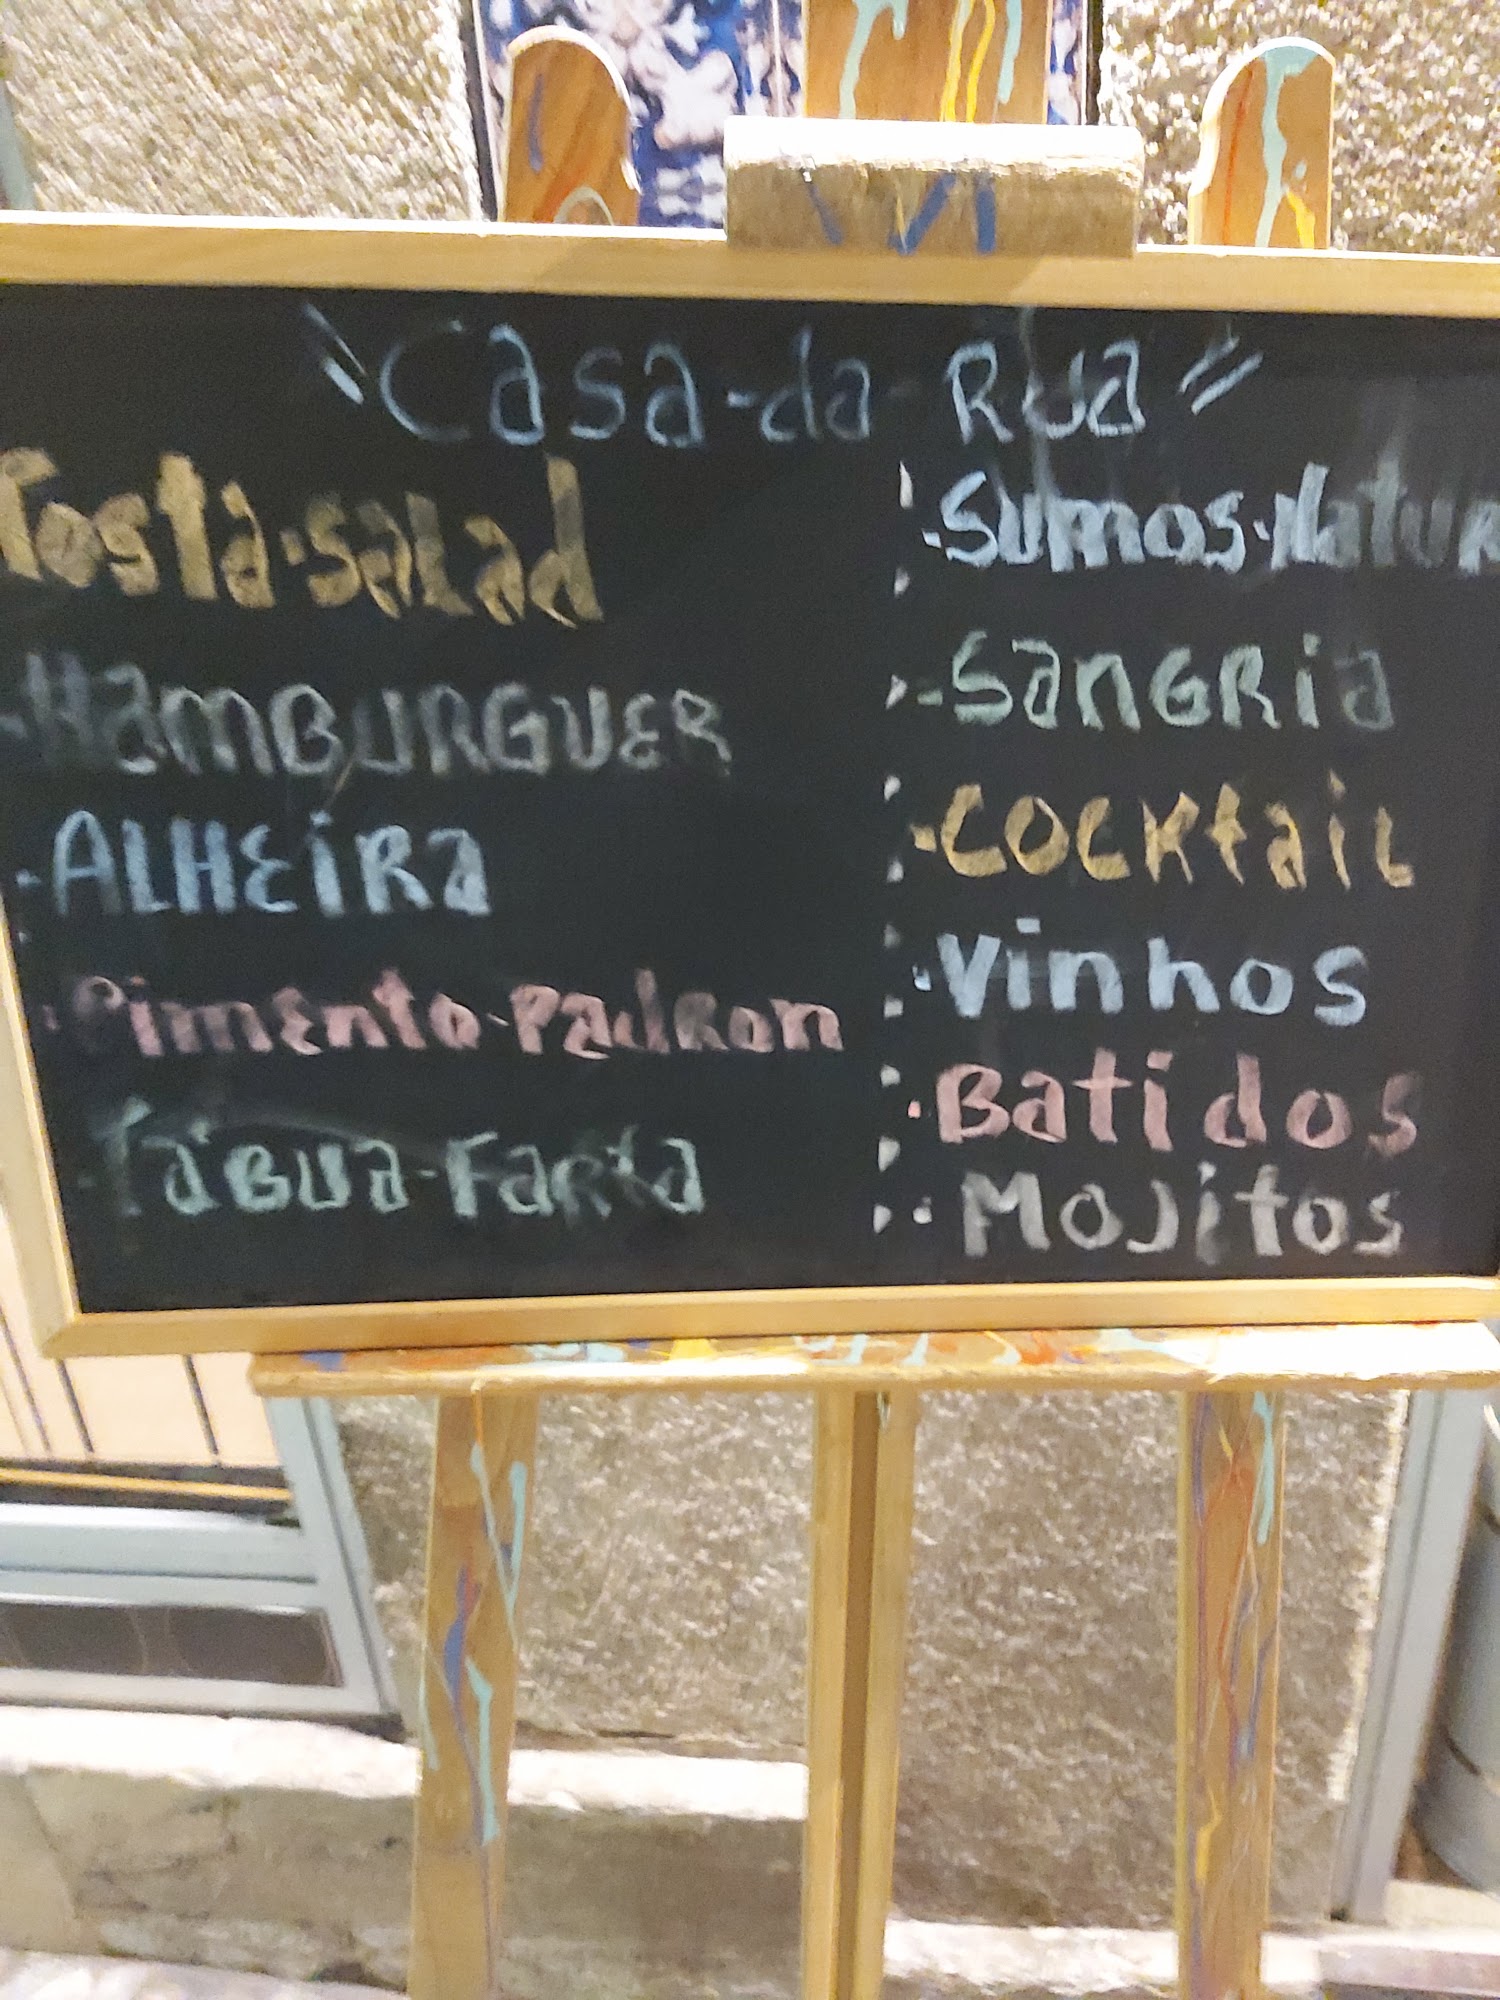 "Casa-da-Rua"
Tosta-salad
-HAMBURGUER
-ALHEIRA
·Pimento-Padron
-TABUA-FARTA
·Sumos-Natur
-SANGRia
·COCKtail
·Vinhos
·Batidos
·Mojitos